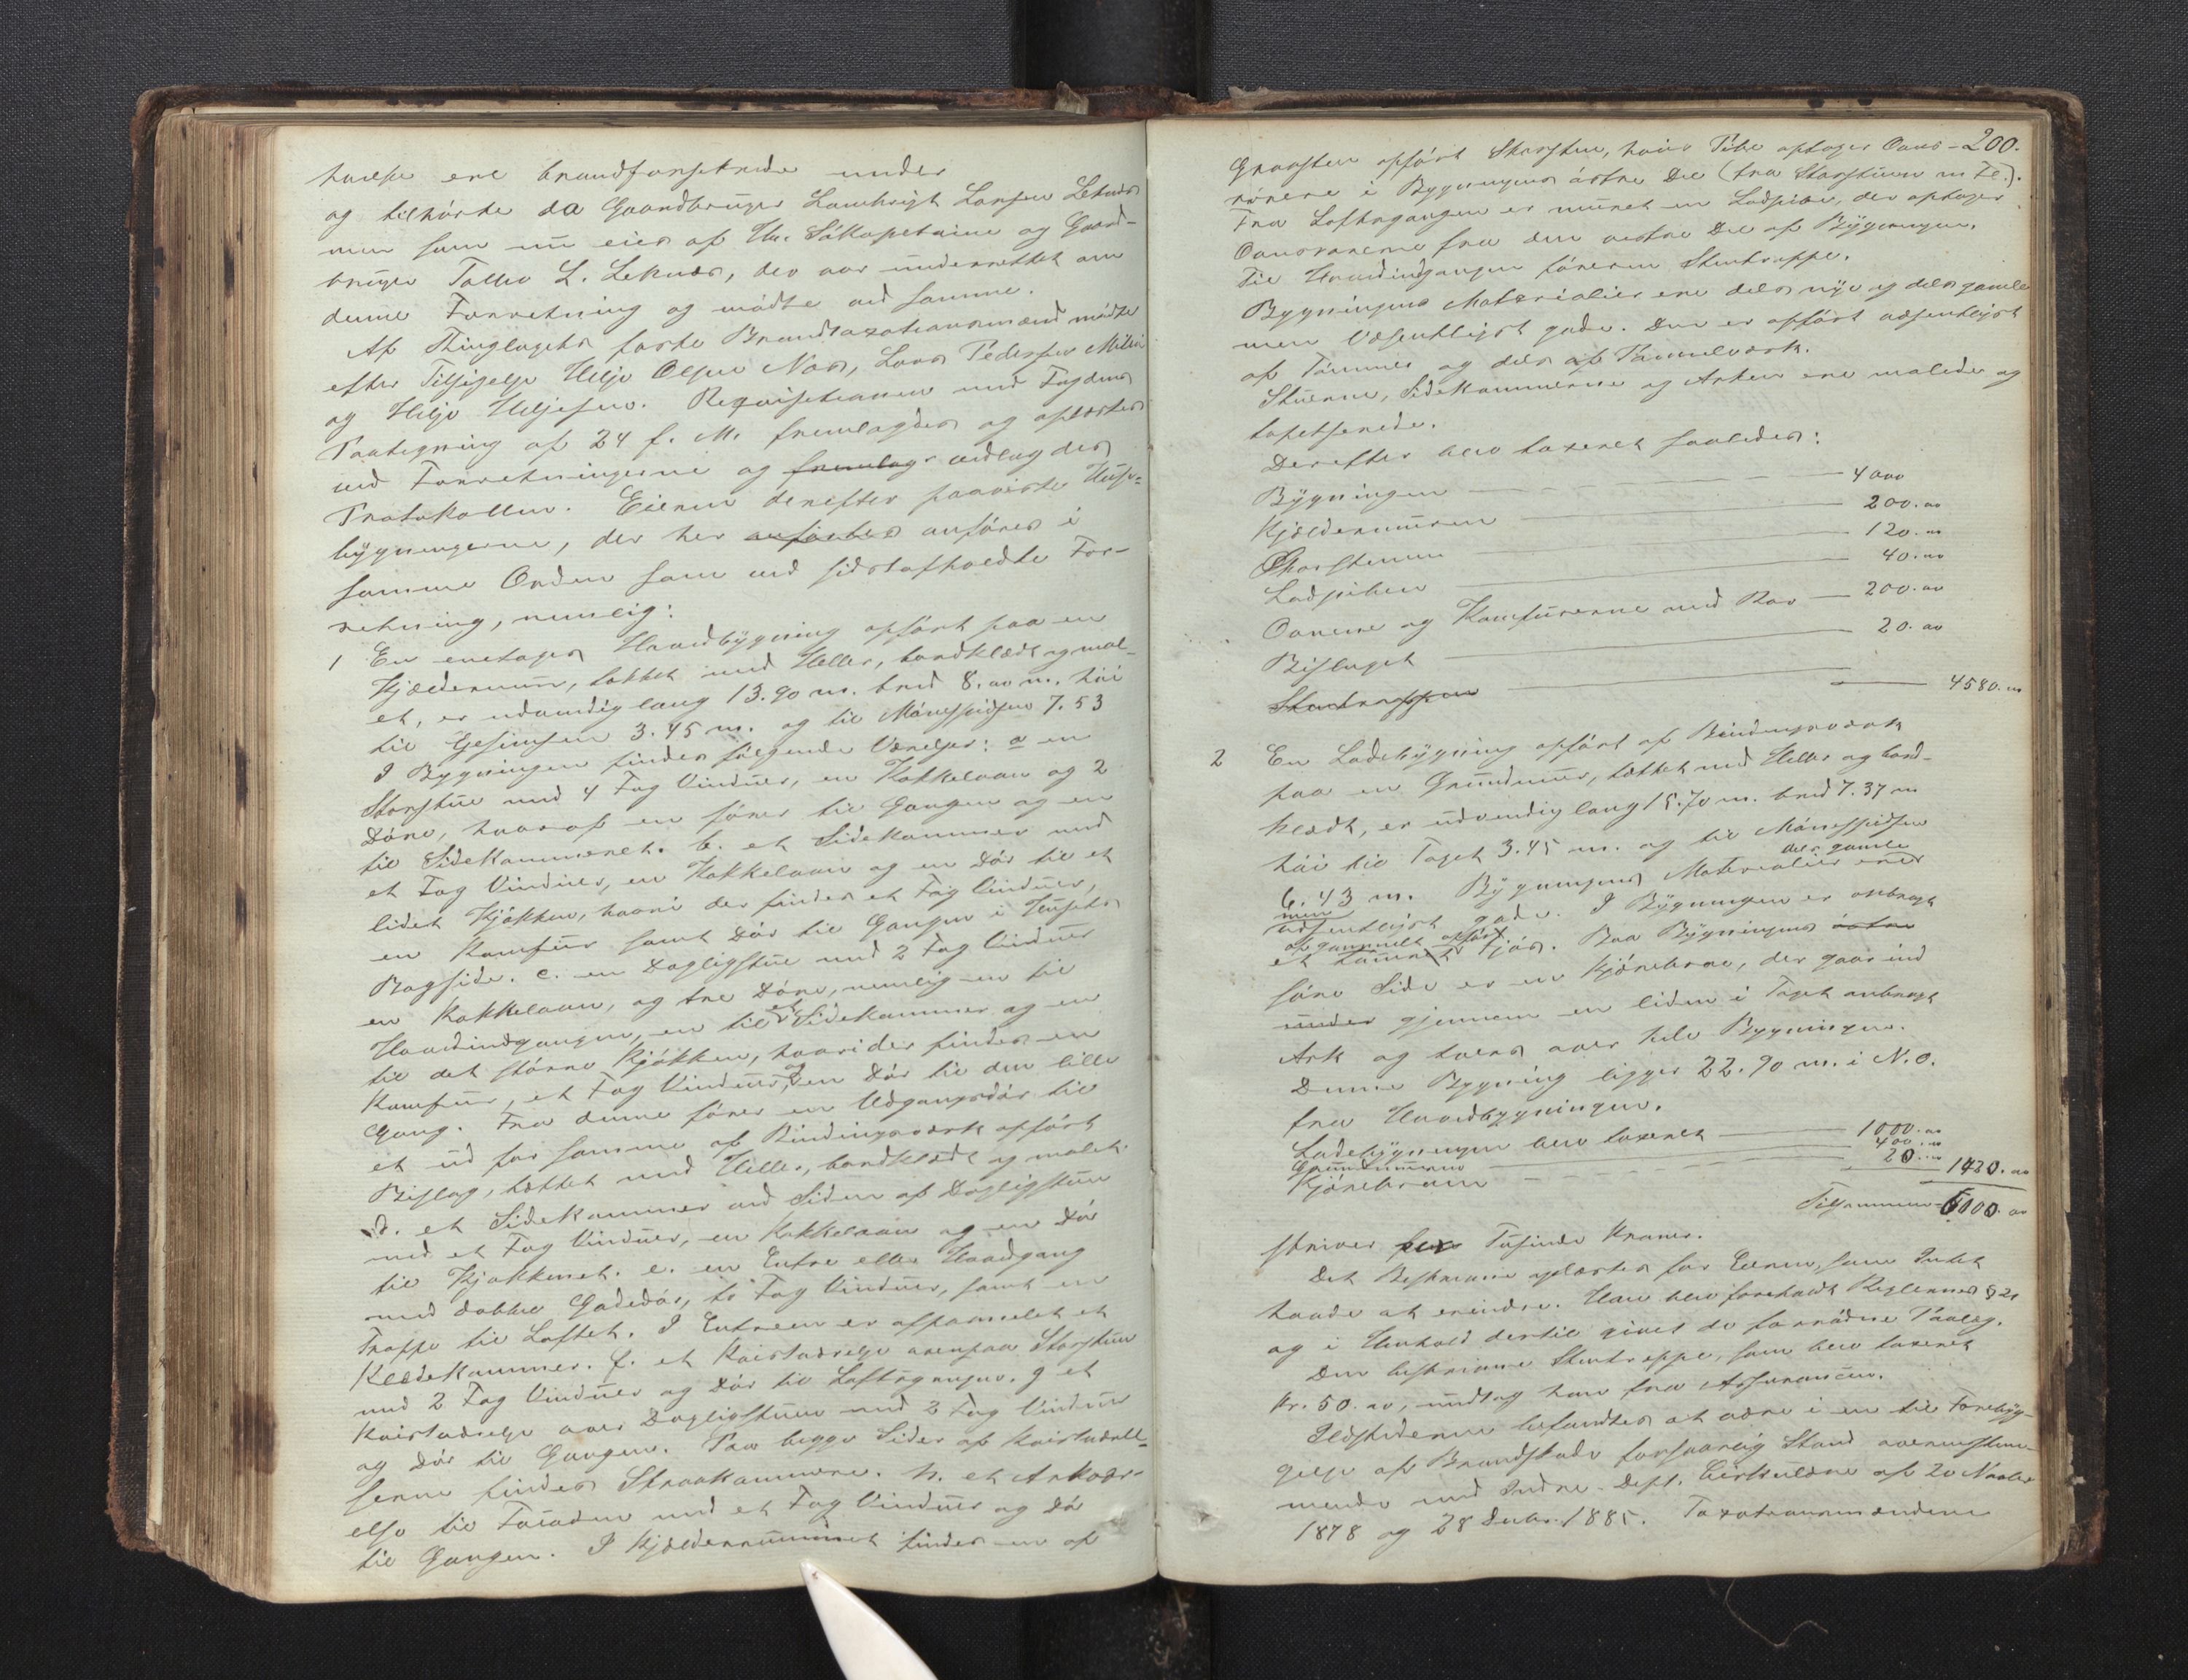 huse ere brandforsikrede under
og tilhørte da Gaardbruger Lambrigt Larsen Leknes
men som nu eies af Hr. Sókapetaine og Gaard-
bruger Tollev L. Leknes, der var underrettet om
denne Forretning og mødte ved samme.
Af Thinglagets faste Brandtaxationsmænd mødte
efter Tilsigelse Helje Olsen Nos, Lars Pedersen
og Helje Heljesen. Reqvisitionen med Fogdens
Paategning af 24 f. M. fremlagdes og oplæstes
ved Forretningerne og fremlag vedlagdes
Protokollen. Eieren derefter paaviste Huse-
bygningerne, der her anførtes anføres i
samme Orden som ved sidstafholdte For-
retning, nemlig:
1 En enetages Hovedbygning opført paa en
Kjældermuur, tækket med Heller, bordklædt og mal-
et, er udvendig lang 13.90 m. bred 8.00 m. høi
til Gesimsen 3.45 m. og til Mønespidsen 7.53
I Bygningen findes følgende Værelser: a en
Storstue med 4 Fag Vinduer, en Kakkelovn og 2
Døre, hvoraf en fører til Gangen og en
til Sidekammeret. b. et Sidekammer med
et Fag Vinduer, en Kakkelovn og en Dør til et
lidet Kjøkken, hvori der findes et Fag Vinduer,
en Komfur samt Dør til Gangen i Husets
Bagside. c. en Dagligstue med 2 Fag Vinduer
en Kakkelovn, og tre Døre, nemlig en til
Hovedindgangen, en til et Sidekammer og en
til det større Kjøkken, hvori der findes en
Komfur, et Fag Vinduer, og en Dør til den lille
Gang. Fra denne fører en Udgangsdør til
et ud for samme af Bindingsværk opført
Bislag, tækket med Heller, bordklædt og malet.
d. et Sidekammer ved Siden af Dagligstuen
med et Fag Vinduer, en Kakkelovn og en Dør
til Kjøkkenet. e. en Entre eller Hovedgang
med dobbel Gadedør, to Fag Vinduer, samt en
Trappe til Loftet. I Entreen er afpanelet et
Klædekammer. f. et Kvistværelse ovenpaa Storstuen
med 2 Fag Vinduer og Dør til Loftsgangen. g et
Kvistværelse over Dagligstuen med 2 Fag Vinduer
og Dør til Gangen. Paa begge Sider af Kvistværel-
serne findes Skraakammere. h. et Arkvær-
else til Facaden med et Fag Vinduer og Dør
til Gangen. I Kjælderrummet findes en af
200.
Graasten opført Skorsten, hvis Pibe optager Ovns-
rørene i Bygningens østre Del (fra Storstuen m Fl.).
Fra Loftsgangen er muret en Lodpibe, der optager
Ovnsrørene fra den vestre Del af Bygningen.
Til Hovedindgangen fører en Stentrappe.
Bygningens Materialier ere dels nye og dels gamle
men væsentligst gode. Den er opført væsentligst
af Tømmer og dels af Pannelværk.
Stuerne, Sidekammerne og Arken ere malede og
tapetserede.
Derefter blev taxeret saaledes:
Bygningen — 4000
Kjældermuren — 200.00
Skorstenen — 120.00
Lodpiben — 40.00
Ovnene og Komfurerne med Rør — 200.00
Bislaget — 20.00
Stentrappen — 4580.00
2 En Ladebygning opført af Bindingsværk
paa en Grundmuur, tækket med Heller og bord-
klædt, er udvendig lang 15.70 m. bred 7.37 m
høi til Taget 3.45 m. og til Mønespidsen
6.43 m. Bygningens Materialier ere dels gamle
men væsentligst gode. I Bygningen er anbragt
et af gammelt opført tømret Fjøs. Paa Bygningens østre
søre Side er en Kjørebro, der gaar ind
under gjennem en liden i Taget anbragt
Ark og tvers over hele Bygningen.
Denne Bygning ligger 22.90 m. i N.O.
fra Hovedbygningen.
Ladebygningen blev taxeret — 1000.00
Grundmuren — 400.00
Kjørebroen — 20.00 1420.00
Tilsammen 6000.00
skriver sex Tusinde Kroner.
Det Beskrevne oplæstes for Eieren, som Intet
havde at erindre. Han blev foreholdt Reglernes § 21
og i Henhold dertil givet de fornødne Paalæg.
Den beskrevne Stentrappe, som blev taxeret
Kr. 50.00, undtog han fra Assurancen.
Ildstederne befandtes at være i en til Forebyg-
gelse af Brandskade forsvarlig Stand overensstem-
mende med Indre-Dept. Cirkulære af 20 Novbr
1878 og 28 Decbr. 1885. Taxationsmændene